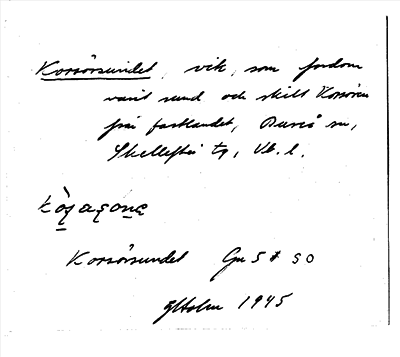 Korsörsundet, vik, som fordom
varit sund och skilt Korsören
från fastlandet, Bureå sn,
Skellefteå tg, Vb. l.
Korsörsundet Gu 5 d SO
GHolm 1945